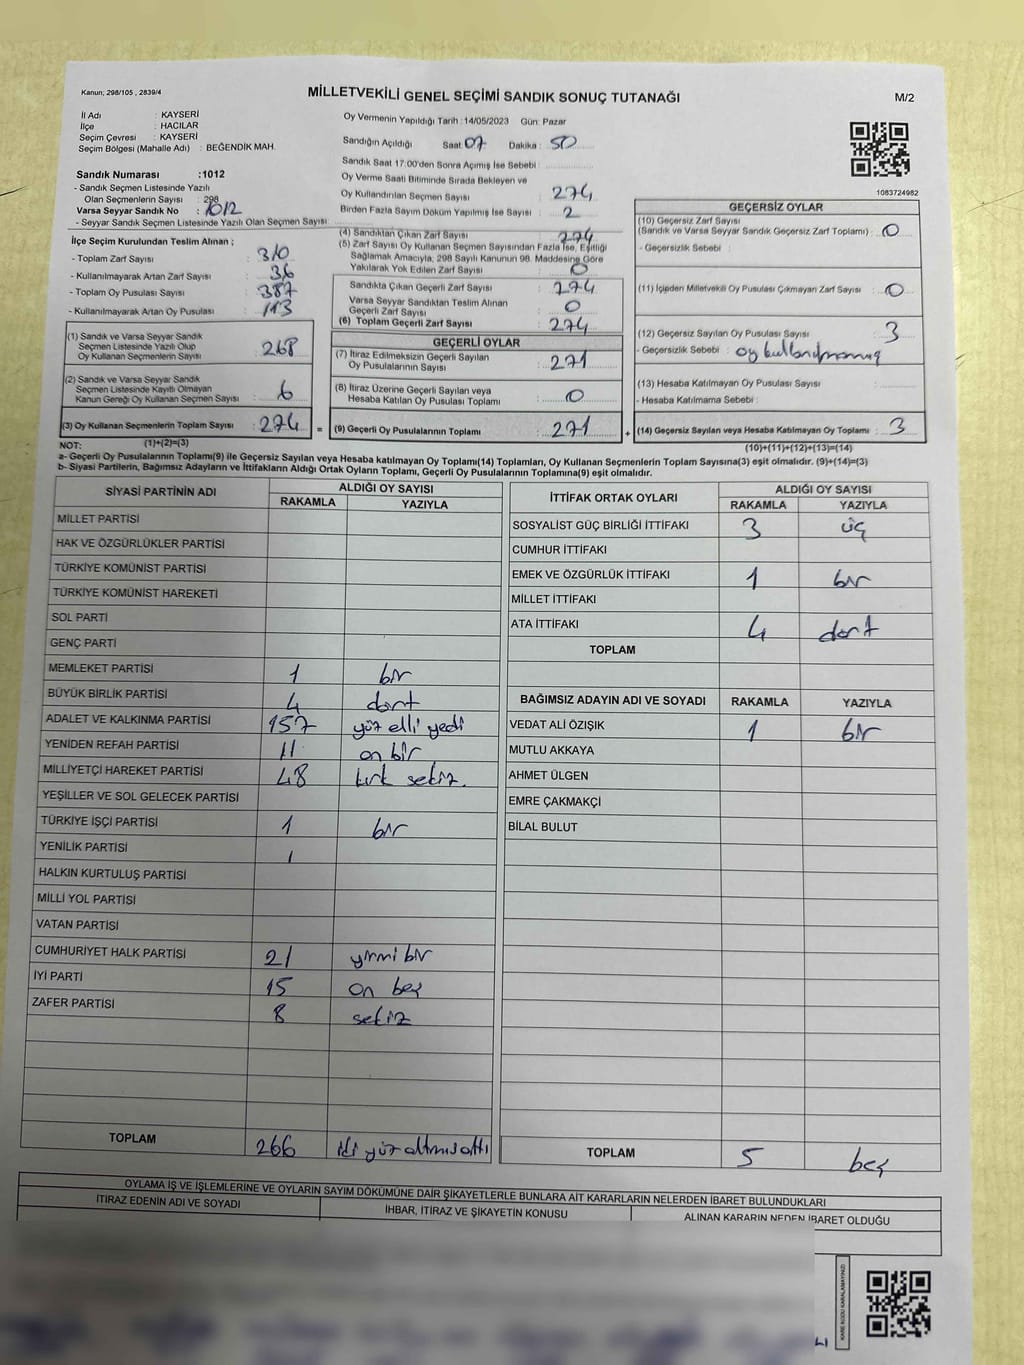 Kanun; 298/105 , 2839/4
MİLLETVEKİLİ GENEL SEÇİMİ SANDIK SONUÇ TUTANAĞI
M/2
İl Adı : KAYSERİ
İlçe : HACILAR
Seçim Çevresi : KAYSERİ
Seçim Bölgesi (Mahalle Adı) : BEĞENDİK MAH.
Sandık Numarası :1012
- Sandık Seçmen Listesinde Yazılı
Olan Seçmenlerin Sayısı : 298
Varsa Seyyar Sandık No : 1012
- Seyyar Sandık Seçmen Listesinde Yazılı Olan Seçmen Sayısı:
İlçe Seçim Kurulundan Teslim Alınan ;
- Toplam Zarf Sayısı : 310
- Kullanılmayarak Artan Zarf Sayısı : 36
- Toplam Oy Pusulası Sayısı : 387
- Kullanılmayarak Artan Oy Pusulası : 113
(1) Sandık ve Varsa Seyyar Sandık
Seçmen Listesinde Yazılı Olup
Oy Kullanan Seçmenlerin Sayısı : 268
(2) Sandık ve Varsa Seyyar Sandık
Seçmen Listesinde Kayıtlı Olmayan
Kanun Gereği Oy Kullanan Seçmen Sayısı : 6
(3) Oy Kullanan Seçmenlerin Toplam Sayısı : 274 =
Oy Vermenin Yapıldığı Tarih :14/05/2023 Gün: Pazar
Sandığın Açıldığı Saat: 07 Dakika : 50
Sandık Saat 17:00'den Sonra Açımış İse Sebebi :
Oy Verme Saati Bitiminde Sırada Bekleyen ve
Oy Kullandırılan Seçmen Sayısı : 274
Birden Fazla Sayım Döküm Yapılmış İse Sayısı : 2
(4) Sandıktan Çıkan Zarf Sayısı : 274
(5) Zarf Sayısı Oy Kullanan Seçmen Sayısından Fazla İse, Eşitliği
Sağlamak Amacıyla, 298 Sayılı Kanunun 98. Maddesine Göre
Yakılarak Yok Edilen Zarf Sayısı : 0
Sandıkta Çıkan Geçerli Zarf Sayısı : 274
Varsa Seyyar Sandıktan Teslim Alınan
Geçerli Zarf Sayısı : 0
(6) Toplam Geçerli Zarf Sayısı : 274
GEÇERLİ OYLAR
(7) İtiraz Edilmeksizin Geçerli Sayılan
Oy Pusulalarının Sayısı : 271
(8) İtiraz Üzerine Geçerli Sayılan veya
Hesaba Katılan Oy Pusulası Toplamı : 0
(9) Geçerli Oy Pusulalarının Toplamı : 271 +
1083724982
GEÇERSİZ OYLAR
(10) Geçersiz Zarf Sayısı
(Sandık ve Varsa Seyyar Sandık Geçersiz Zarf Toplamı) : 0
- Geçersizlik Sebebi :
(11) İçinden Milletvekili Oy Pusulası Çıkmayan Zarf Sayısı : 0
(12) Geçersiz Sayılan Oy Pusulası Sayısı : 3
- Geçersizlik Sebebi : oy kullanılmamış
(13) Hesaba Katılmayan Oy Pusulası Sayısı :
- Hesaba Katılmama Sebebi :
(14) Geçersiz Sayılan veya Hesaba Katılmayan Oy Toplamı : 3
NOT: (1)+(2)=(3)
(10)+(11)+(12)+(13)=(14)
a- Geçerli Oy Pusulalarının Toplamı(9) ile Geçersiz Sayılan veya Hesaba katılmayan Oy Toplamı(14) Toplamları, Oy Kullanan Seçmenlerin Toplam Sayısına(3) eşit olmalıdır. (9)+(14)=(3)
b- Siyasi Partilerin, Bağımsız Adayların ve İttifakların Aldığı Ortak Oyların Toplamı, Geçerli Oy Pusulalarının Toplamına(9) eşit olmalıdır.
SİYASİ PARTİNİN ADI ALDIĞI OY SAYISI
RAKAMLA YAZIYLA
MİLLET PARTİSİ
HAK VE ÖZGÜRLÜKLER PARTİSİ
TÜRKİYE KOMÜNİST PARTİSİ
TÜRKİYE KOMÜNİST HAREKETİ
SOL PARTİ
GENÇ PARTİ
MEMLEKET PARTİSİ 1 bir
BÜYÜK BİRLİK PARTİSİ 4 dört
ADALET VE KALKINMA PARTİSİ 157 yüz elli yedi
YENİDEN REFAH PARTİSİ 11 on bir
MİLLİYETÇİ HAREKET PARTİSİ 48 kırk sekiz.
YEŞİLLER VE SOL GELECEK PARTİSİ
TÜRKİYE İŞÇİ PARTİSİ 1 bir
YENİLİK PARTİSİ
HALKIN KURTULUŞ PARTİSİ
MİLLİ YOL PARTİSİ
VATAN PARTİSİ
CUMHURİYET HALK PARTİSİ 21 yirmi bir
İYİ PARTİ 15 on beş
ZAFER PARTİSİ 8 sekiz
TOPLAM 266 iki yüz altmış altı
İTTİFAK ORTAK OYLARI ALDIĞI OY SAYISI
RAKAMLA YAZIYLA
SOSYALİST GÜÇ BİRLİĞİ İTTİFAKI 3 üç
CUMHUR İTTİFAKI
EMEK VE ÖZGÜRLÜK İTTİFAKI 1 bir
MİLLET İTTİFAKI
ATA İTTİFAKI 4 dört
TOPLAM
BAĞIMSIZ ADAYIN ADI VE SOYADI RAKAMLA YAZIYLA
VEDAT ALİ ÖZIŞIK 1 bir
MUTLU AKKAYA
AHMET ÜLGEN
EMRE ÇAKMAKÇİ
BİLAL BULUT
TOPLAM 5 beş
OYLAMA İŞ VE İŞLEMLERİNE VE OYLARIN SAYIM DÖKÜMÜNE DAİR ŞİKAYETLERLE BUNLARA AİT KARARLARIN NELERDEN İBARET BULUNDUKLARI
İTİRAZ EDENİN ADI VE SOYADI İHBAR, İTİRAZ VE ŞİKAYETİN KONUSU ALINAN KARARIN NEDEN İBARET OLDUĞU
KARE KODU KARALAMAYINIZ!